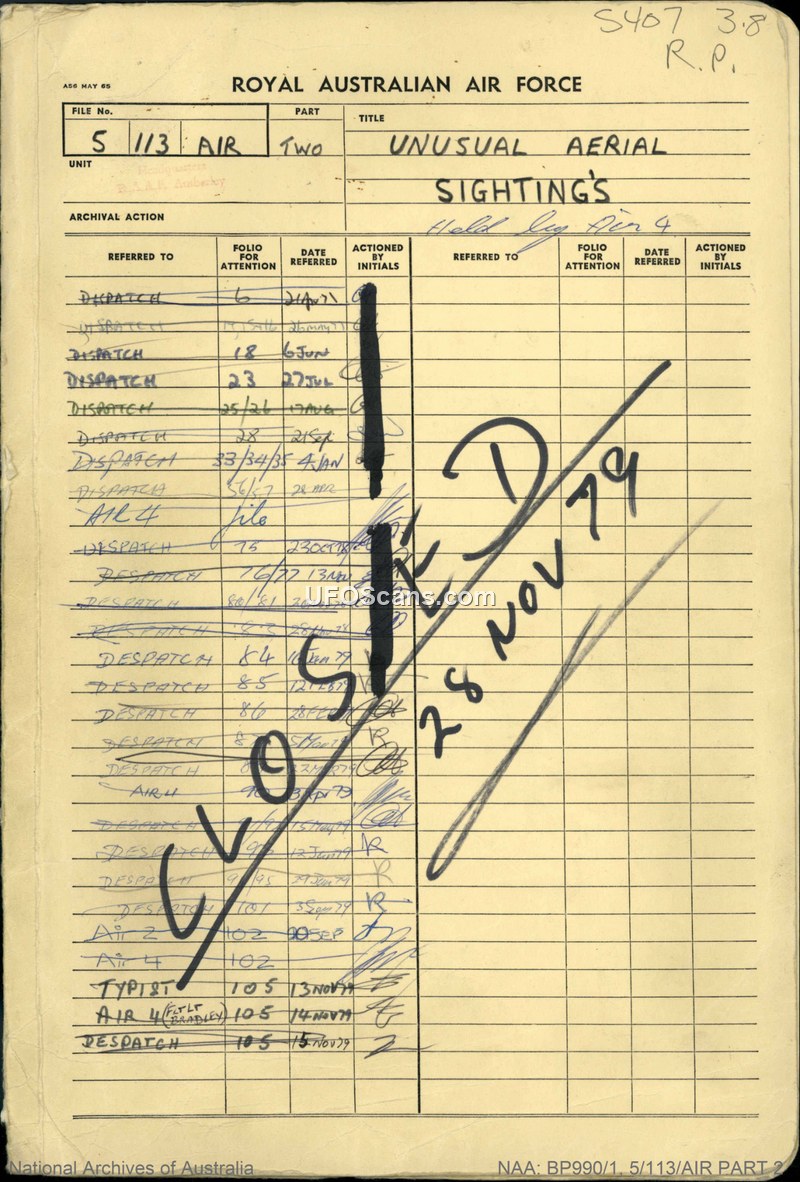 S407 3.8
R.P.
A56 MAY 65
ROYAL AUSTRALIAN AIR FORCE
FILE No. PART TITLE
5 113 AIR TWO UNUSUAL AERIAL
UNIT
SIGHTING'S
Held by Air 4
ARCHIVAL ACTION
REFERRED TO FOLIO FOR ATTENTION DATE REFERRED ACTIONED BY INITIALS REFERRED TO FOLIO FOR ATTENTION DATE REFERRED ACTIONED BY INITIALS
DISPATCH 6 21 Apr 71
DISPATCH 26 MAY 71
DISPATCH 18 6 JUN
DISPATCH 23 27 JUL
DISPATCH 25/26 17 AUG
DISPATCH 28 21 Sep
DISPATCH 33/34/35 4 JAN
DISPATCH 56/57 28 APR
AIR 4 file
DESPATCH 75 23 OCT 78
DESPATCH 76/77 13 NOV
DESPATCH 80/81
DESPATCH
DESPATCH 84 79
DESPATCH 85 12 FEB 79
DESPATCH 86 28 FEB
DESPATCH R
DESPATCH
AIR 4 3 Apr 79
DESPATCH 79
DESPATCH 12 Jun 79 R
DESPATCH 79 R
DESPATCH 101 3 Sep 79 R
Air 2 102 SEP
Air 4 102
TYPIST 105 13 NOV 79
AIR 4 (FLTLT BRADLEY) 105 14 NOV 79
DESPATCH 105 15 NOV 79
CLOSED
28 NOV 79
UFOScans.com
National Archives of Australia NAA: BP990/1, 5/113/AIR PART 2